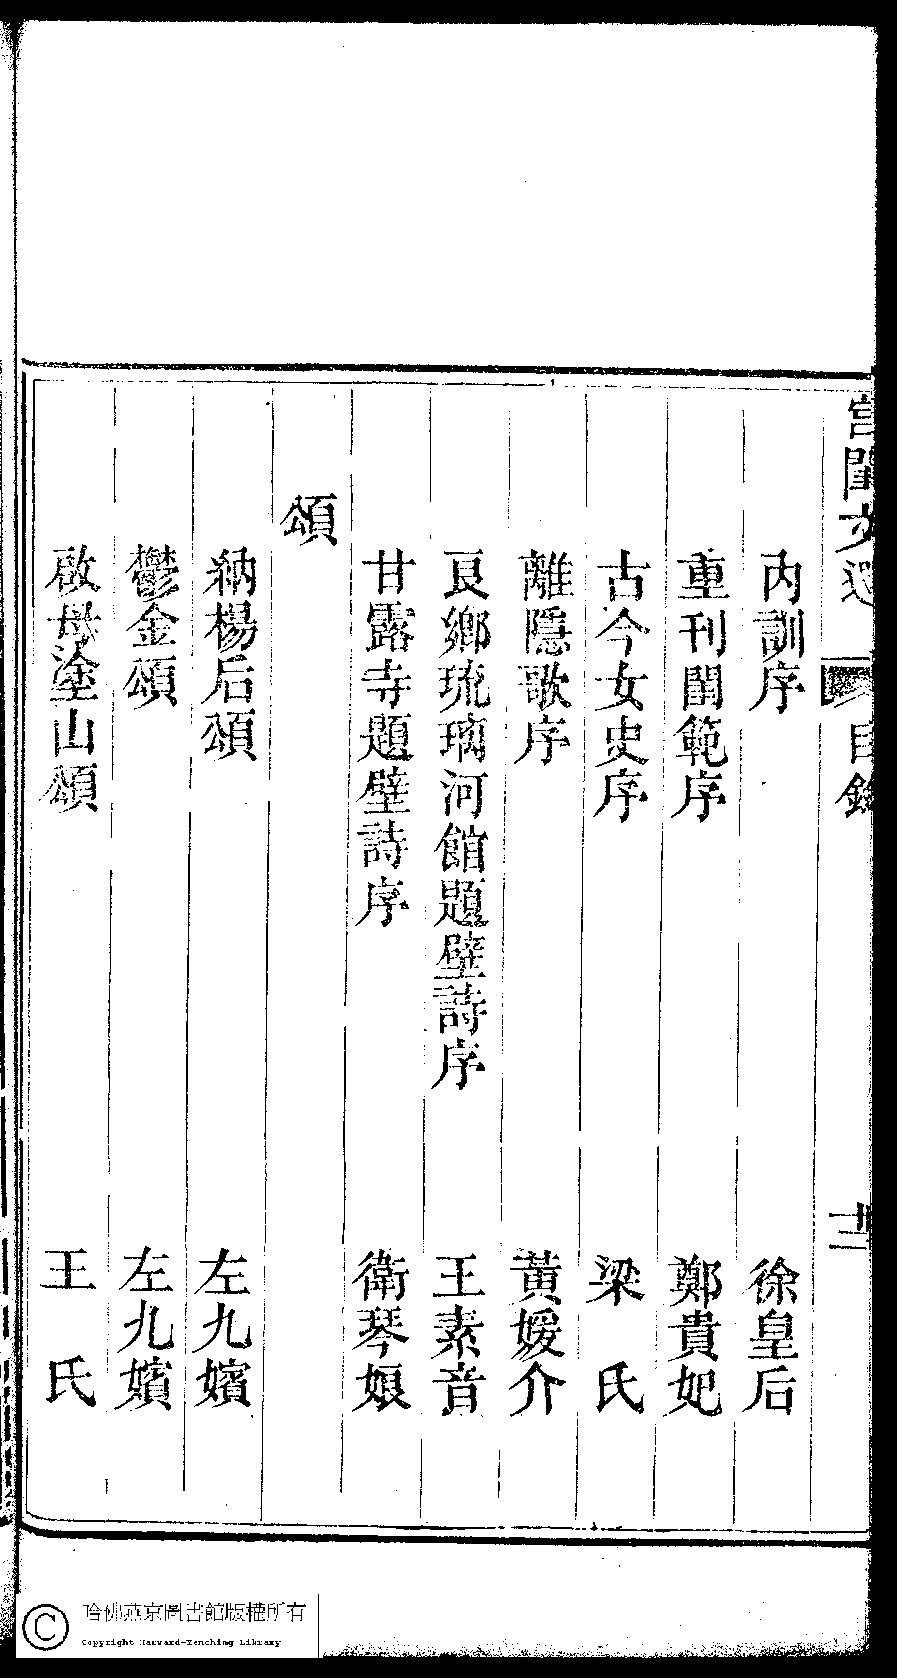 宮閨文選
目錄
十二
內訓序 徐皇后
重刊閨範序 鄭貴妃
古今女史序 梁氏
離隱歌序 黃媛介
良鄉琉璃河館題壁詩序 王素音
甘露寺題壁詩序 衛琴娘
頌
納楊后頌 左九嬪
鬱金頌 左九嬪
啟母塗山頌 王氏
哈佛燕京圖書館版權所有
Copyright Harvard-Yenching Library